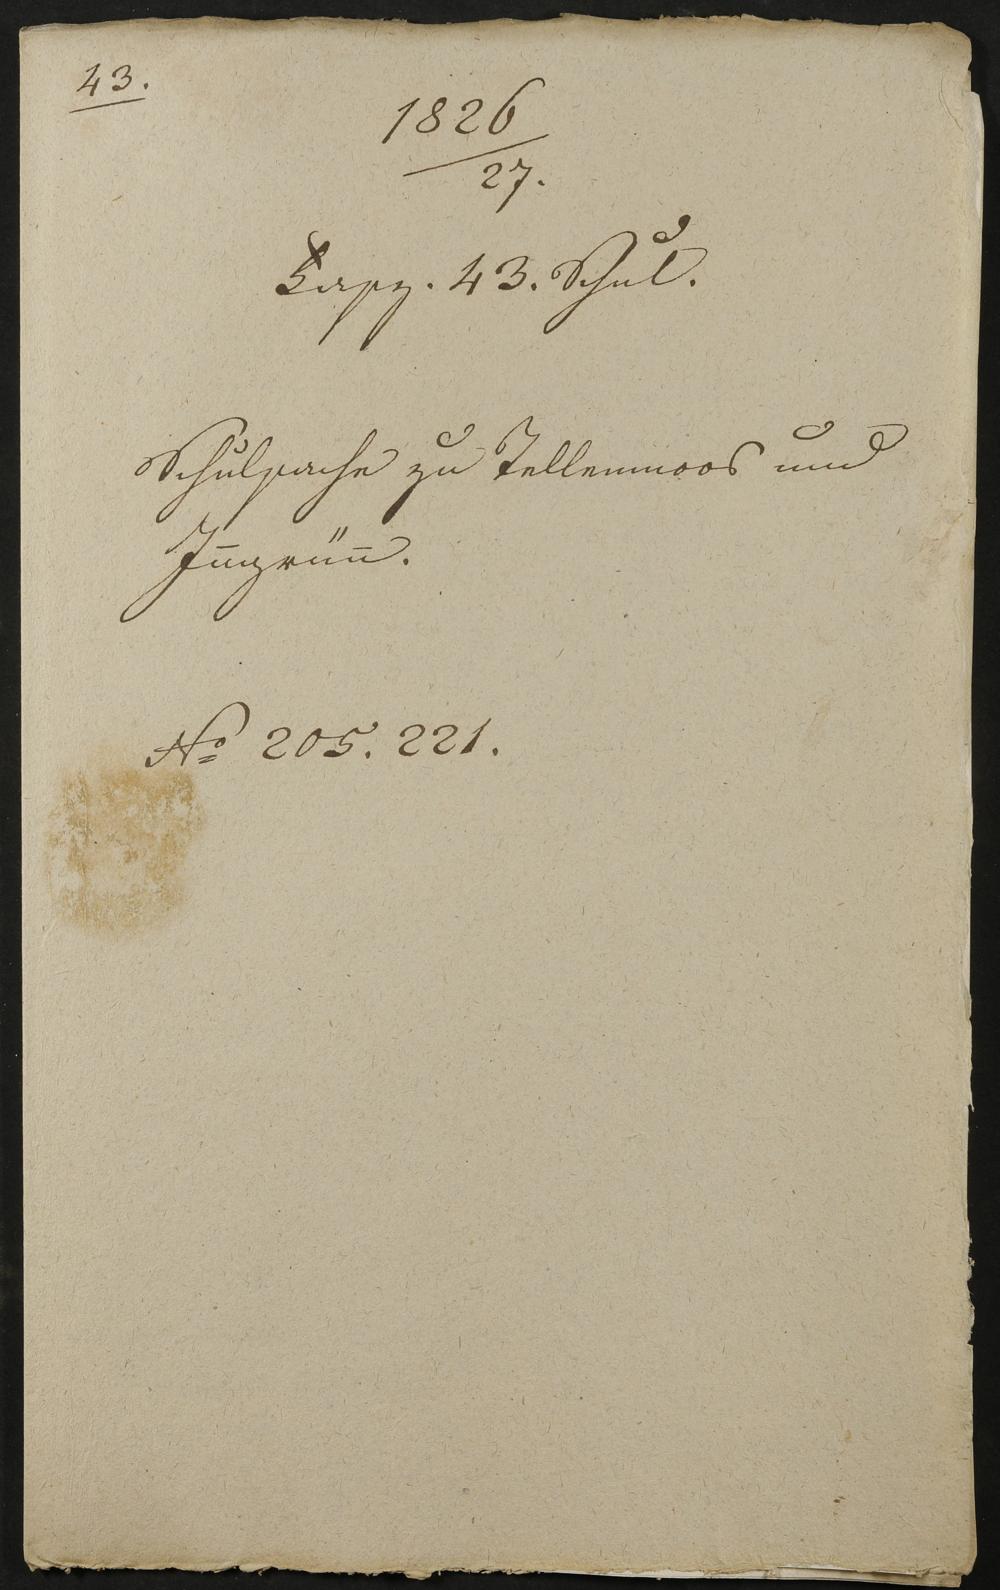 43.
1826
27.
Kapz. 43. Schul.
Schulsache zu Tellenmoos und
No 205. 221.